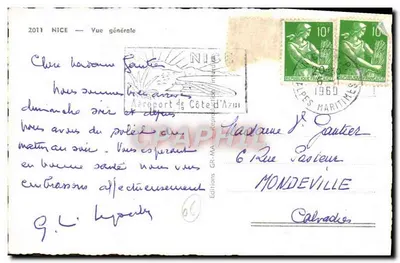 2011 NICE — Vue générale
NICE
Aéroport de Côte d'Azur
10F
10F
1960
ALPES MARITIMES
Chère Madame Gautier
Nous sommes bien arrivés
dimanche soir et depuis
nous avons du soleil du
matin au soir. Vous espérant
en bonne santé nous vous
embrassons affectueusement
G. L.
Editions
Madame Vve Gautier
6 Rue Pasteur
MONDEVILLE
Calvados